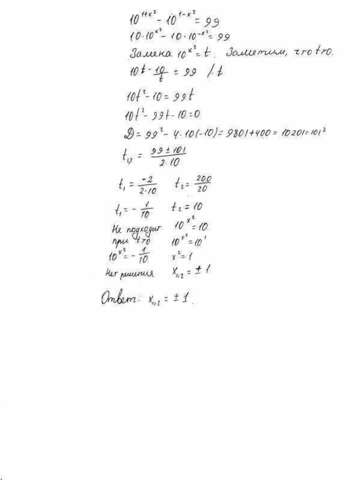 10^{1+x²} - 10^{1-x²} = 99
10·10^{x²} - 10·10^{-x²} = 99
Замена 10^{x²} = t. Заметим, что t>0.
10t - 10/t = 99 /·t
10t² - 10 = 99t
10t² - 99t - 10 = 0
D = 99² - 4·10(-10) = 9801 + 400 = 10201 = 101²
t₁,₂ = (99 ± 101)/(2·10)
t₁ = -2/(2·10) t₂ = 200/20
t₁ = -1/10 t₂ = 10
Не подходит 10^{x²} = 10
при t>0 10^{x²} = 10¹
10^{x²} = -1/10 x² = 1
нет решения x₁,₂ = ±1
Ответ: x₁,₂ = ±1.